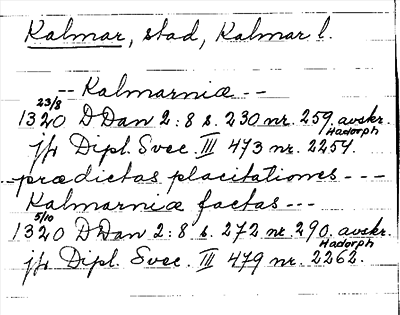 Kalmar, stad, Kalmar l.
-- Kalmarniæ --
23/8
1320 DDan 2:8 s. 230 nr. 259. avskr.
Hadorph
jfr Dipl. Svec. III 473 nr. 2254.
prædictas placitationes ---
Kalmarniæ factas ---
5/10
1320 DDan 2:8 s. 272 nr. 290. avskr.
Hadorph
jfr Dipl. Svec. III 479 nr. 2262.